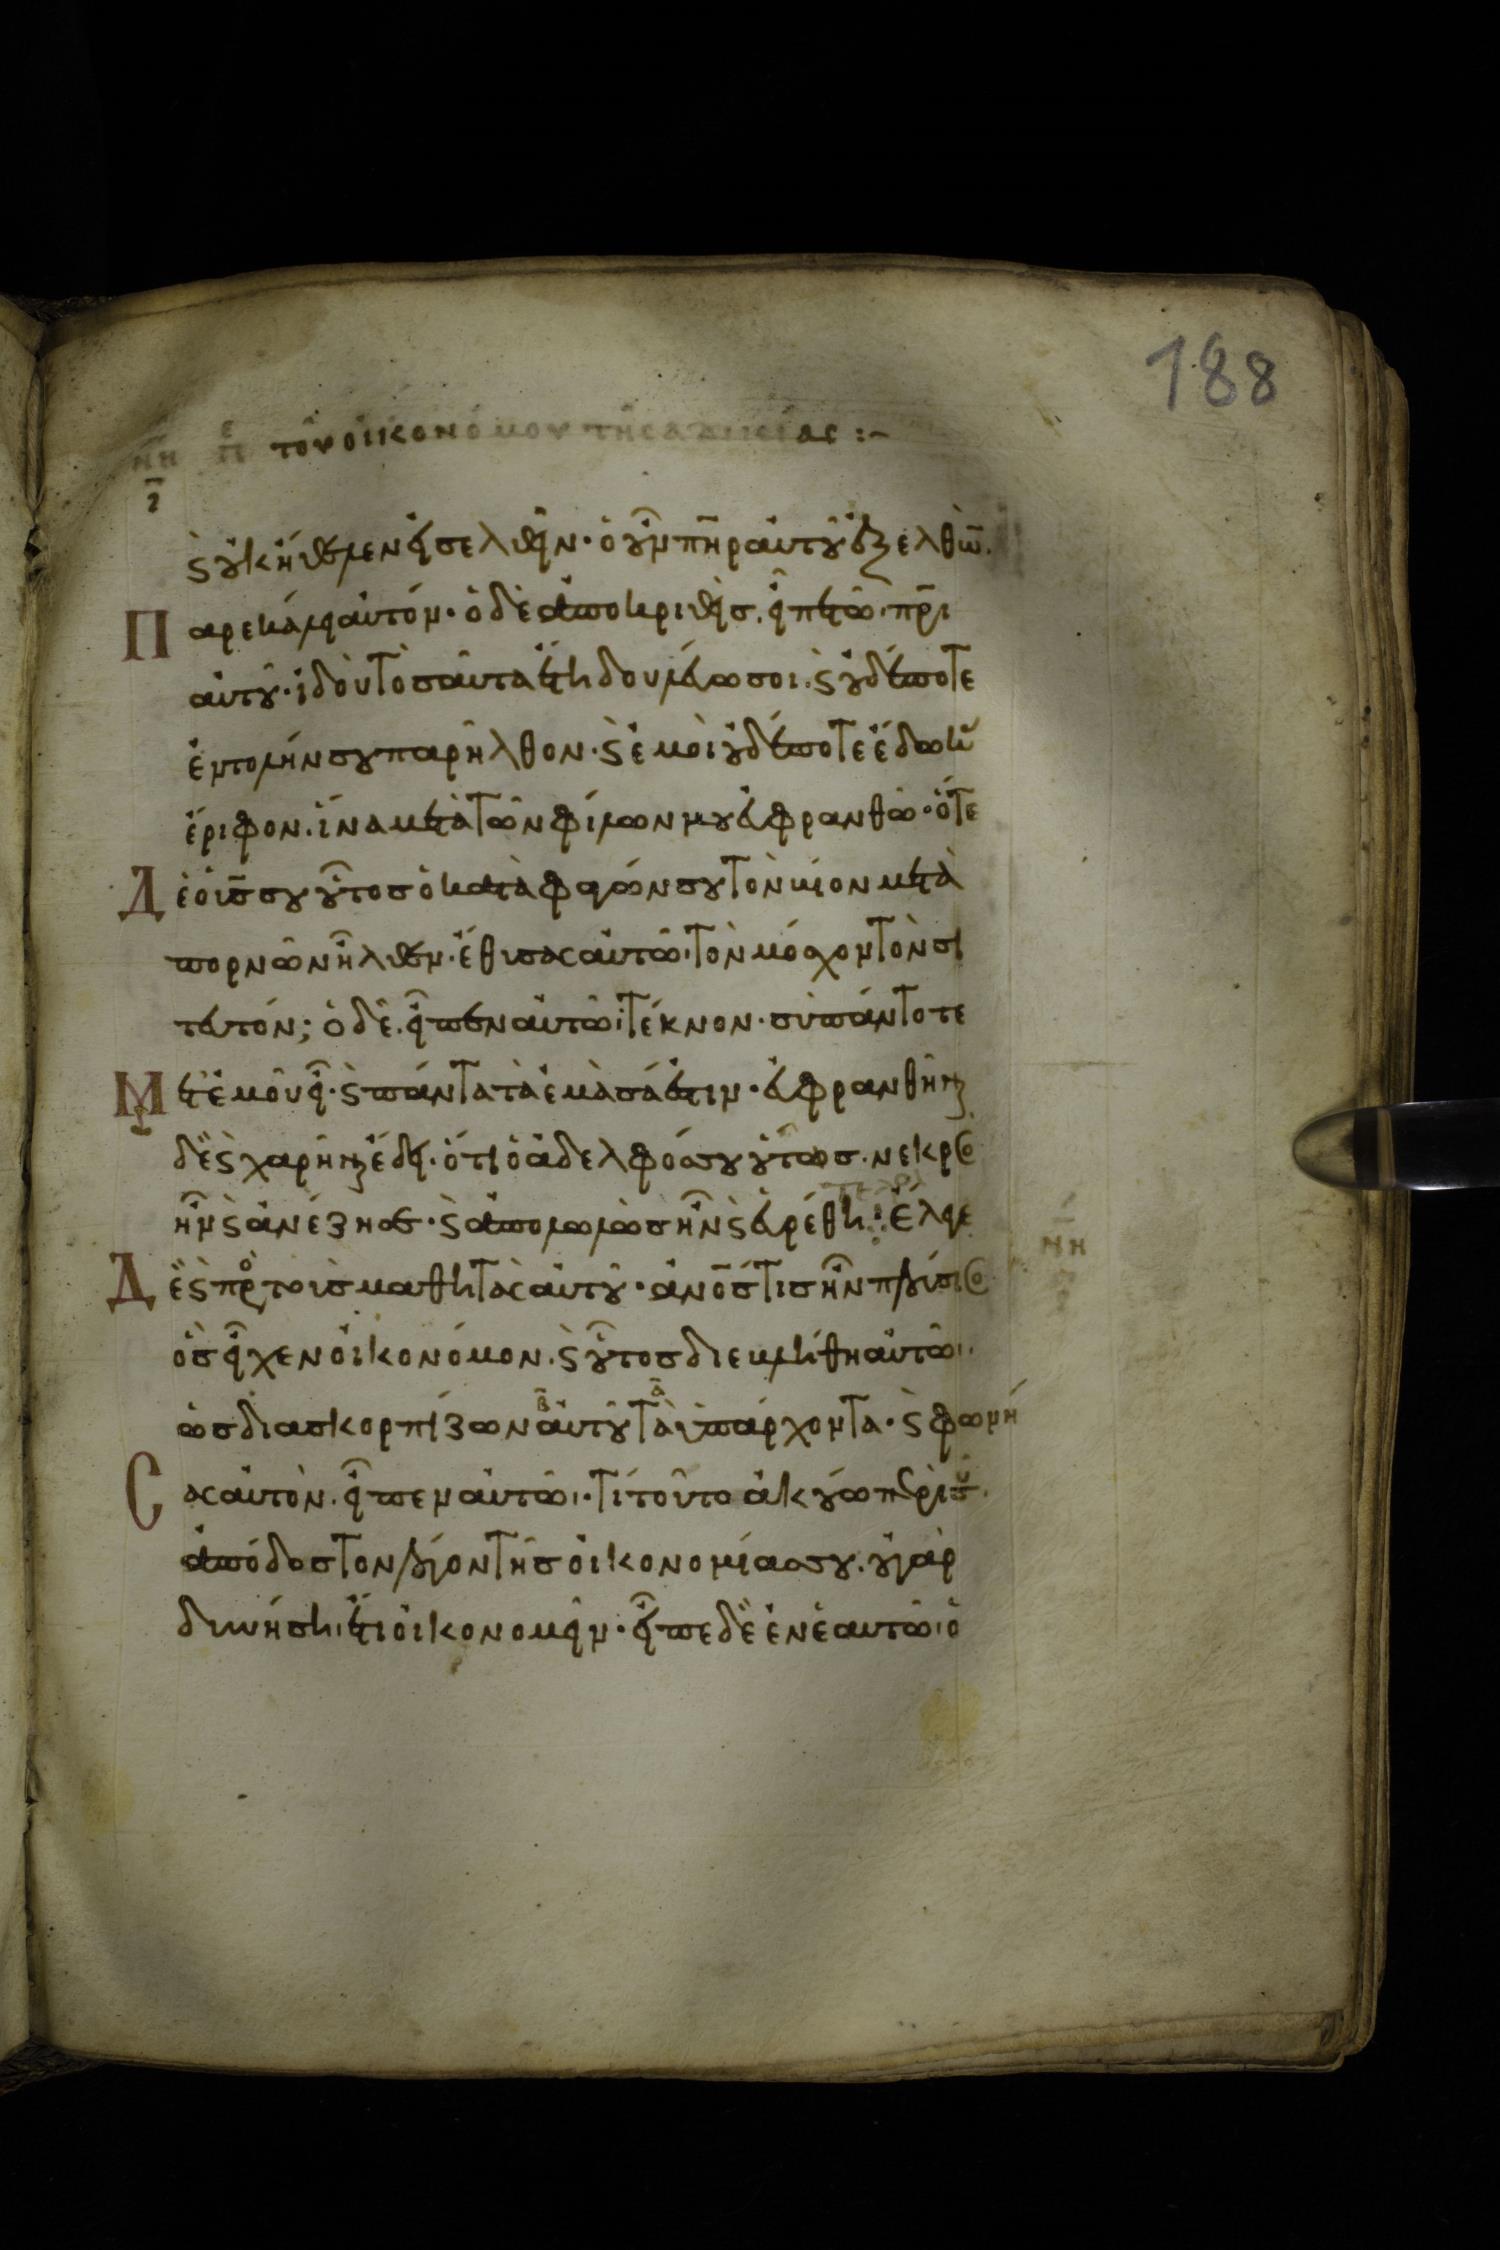 188
τοῦ οἰκονόμου τῆς ἀδικίας :-
ϛ οὐκ ἤθελεν εἰσελθεῖν· ὁ οὖν πηρ αὐτοῦ ἐξελθὼ̄.
Παρεκάλει αὐτόν· ὁ δὲ ἀποκριθεὶσ. εἶπε τῶ πρι
αὐτοῦ· ἰδοὺ τοσαῦτα ἔτη δουλεύω σοι. ϛ οὐδέποτε
ἐντολήν σου παρῆλθον· ϛ ἐμοὶ οὐδέποτε ἔδωκ
ἔριφον. ἵνα μετὰ τῶν φίλων μου εὐφρανθῶ· ὅτε
Δὲ ὁ υσ σου οὗτοσ ὁ καταφαγών σου τὸν βίον μετὰ
πορνῶν ἦλθεν· ἔθυσας αὐτῶ· τὸν μόσχον τὸν σι
τευτόν; ὁ δὲ. εἶπεν αὐτῶ· τέκνον· σὺ πάντοτε
Μετ ἐμοῦ εἶ· ϛ πάντα τὰ ἐμὰ σά ἐστιν· εὐφρανθῆναι
δὲ ϛ χαρῆναι ἔδει· ὅτι ὁ ἀδελφόσ σου οὗτοσ. νεκρὸσ
ἦν ϛ ἀνέζησε· ϛ ἀπολωλὼσ ἦν ϛ εὑρέθη: ἔλεγε
Δὲ ϛ πρὸ τοὺσ μαθητὰς αὐτοῦ· ανοσ τισ ἦν πλούσιοσ
ὃσ εἶχεν οἰκονόμον. ϛ οὗτοσ διεβλήθη αὐτῶ·
ὡσ διασκορπίζων αὐτοῦ τὰ ὑπάρχοντα· ϛ φωνή
Σας αὐτὸν. εἶπεν αὐτῶ· τί τοῦτο ἀκούω περὶ σου.
ἀπόδοσ τὸν λόγον τῆσ οἰκονομίασ σου. οὐ γὰρ
δυνήση ἔτι οἰκονομεῖν· εἶπε δὲ ἐν ἑαυτῶ ὁ